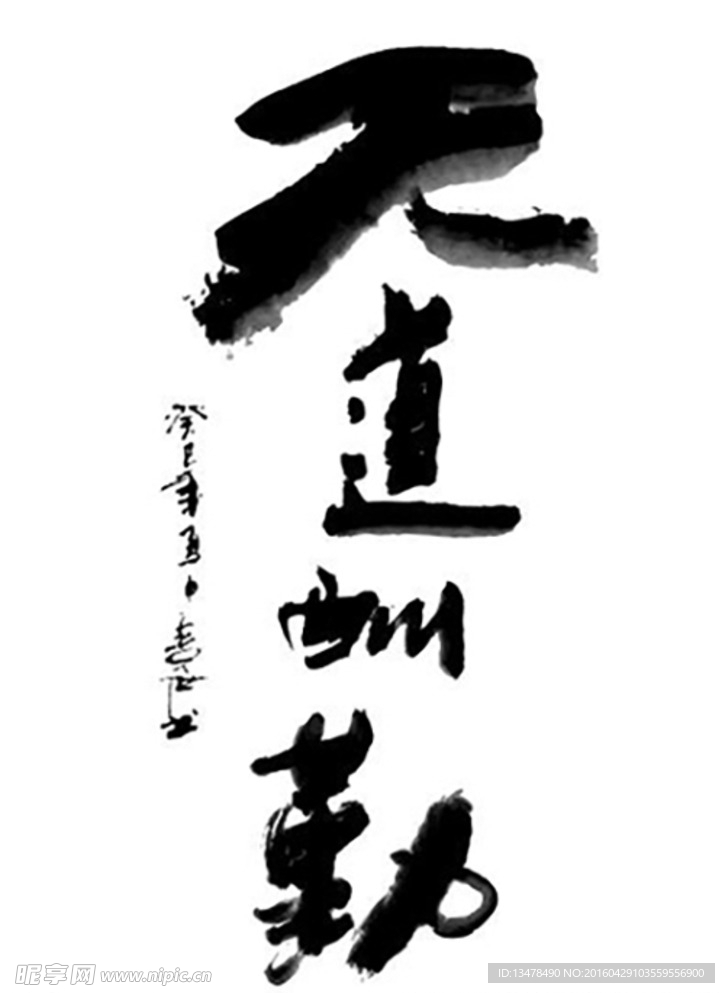 天道酬勤
癸巳年
昵享网 www.nipic.cn
ID:13478490 NO:20160429103559556900